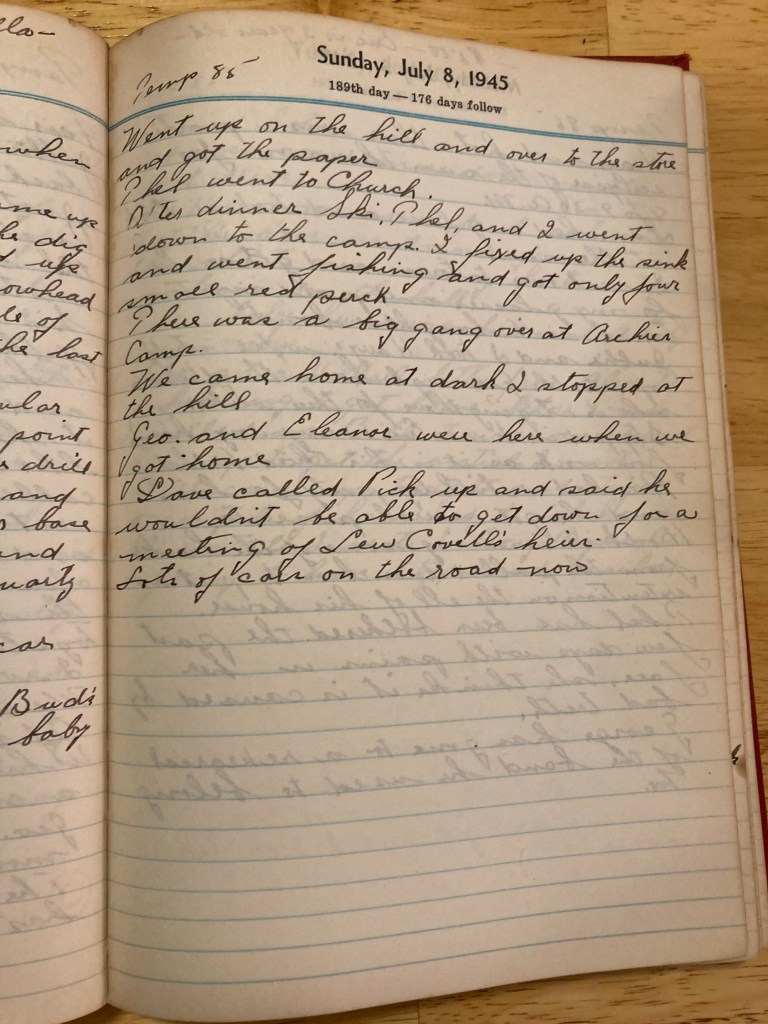 lla-
when
me up
he dig
d up
owhead
le of
the last
ular
point
drill
and
base
and
uartz
car
Bud's
baby
Sunday, July 8, 1945
Temp 85
189th day — 176 days follow
Went up on the hill and over to the store
and got the paper
Phel went to Church.
After dinner Ski, Phel, and I went
down to the camp. I fixed up the sink
and went fishing and got only four
small red perch
There was a big gang over at Archies
Camp.
We came home at dark I stopped at
the hill
Geo. and Eleanor were here when we
got home
Dave called Pick up and said he
wouldn't be able to get down for a
meeting of Lew Covell's heirs.
Lots of cars on the road now